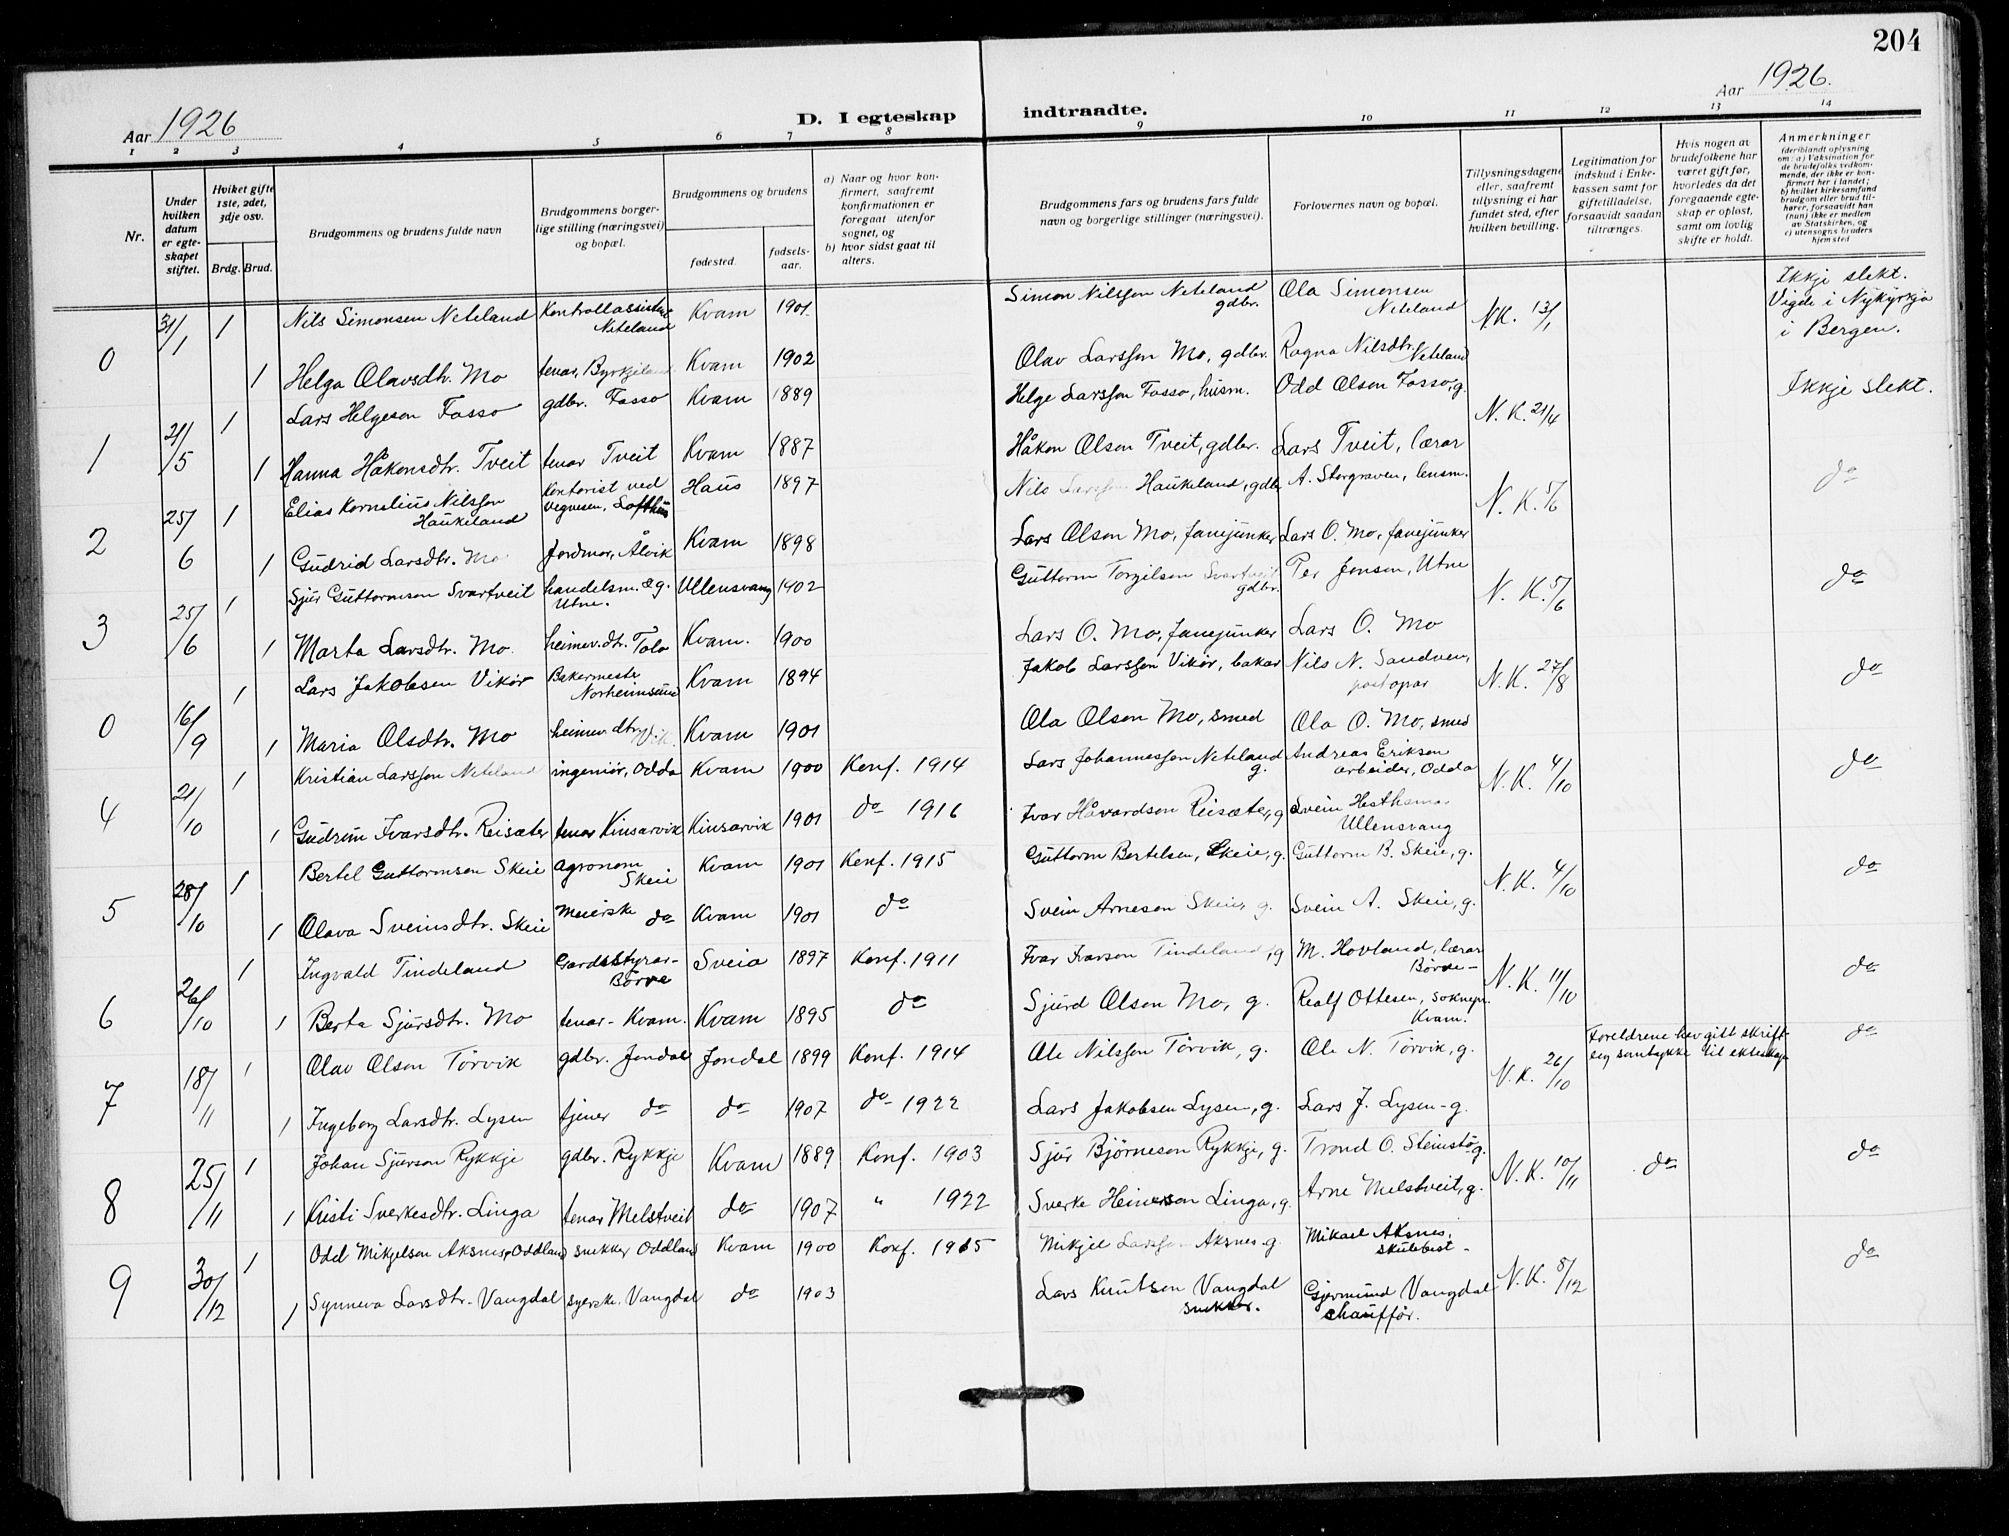 204
Aar 1926
D. I egteskap indtraadte.
Aar 1926.
1 2 3 4 5 6 7 8 9 10 11 12 13 14
Nr.
Under hvilken datum er egteskapet stiftet.
Hviket gifte 1ste, 2det, 3dje osv.
Brdg. Brud.
Brudgommens og brudens fulde navn
Brudgommens borgerlige stilling (næringsvei) og bopæl.
Brudgommens og brudens
fødested.
fødselsaar.
a) Naar og hvor konfirmert, saafremt konfirmationen er foregaat utenfor sognet, og
b) hvor sidst gaat til alters.
Brudgommens fars og brudens fars fulde navn og borgerlige stillinger (næringsvei).
Forlovernes navn og bopæl.
Tillysningsdagene eller, saafremt tillysning ei har fundet sted, efter hvilken bevilling.
Legitimation for indskud i Enkekassen samt for giftetilladelse, forsaavidt saadan tiltrænges.
Hvis nogen av brudefolkene har været gift før, hvorledes da det foregaaende egteskap er opløst, samt om lovlig skifte er holdt.
Anmerkninger (deriblandt oplysning om: a) Vaksination for de brudefolks vedkommende, der ikke er konfirmert her i landet; b) hvilket kirkesamfund brudgom eller brud tilhører, forsaavidt han (hun) ikke er medlem av Statskirken, og c) utensogns bruders hjemsted
0 31/1 1 Nils Simonsen Neteland Kontrollassistent Neteland Kvam 1901 Simon Nilsson Neteland gdbr. Ola Simonsen Neteland N.K. 13/1 Ikkje slekt. Vigde i Nykyrkja i Bergen.
1 Helga Olavsdtr. Mo tenar, Byrkjeland Kvam 1902 Olav Larsson Mo, gdbr. Ragna Nilsdtr. Neteland
1 21/5 1 Lars Helgeson Fosso gdbr. Fosso Kvam 1889 Helge Larsson Fosso, husm. Odd Olson Fosso, g. N.K. 21/4 Ikkje slekt.
1 Hanna Håkonsdtr. Tveit tenar Tveit Kvam 1887 Håkon Olson Tveit, gdbr. Lars Tveit, lærar
2 25/6 1 Elias Kornelius Nilsson Haukeland Kontorist ved vegvesen, Lofthus Haus 1897 Nils Larsson Haukeland, gdbr A. Storgraven, lensm. N.K. 5/6 do
1 Gudrid Larsdtr. Mo Jordmor, Ålvik Kvam 1898 Lars Olson Mo, fanejunker Lars O. Mo, fanejunker
3 25/6 1 Sjur Guttormson Svartveit handelsm. &g. Utne. Ullensvang 1902 Guttorm Torgilson Svartveit gdbr. Per Jonson, Utne N.K. 5/6 do
1 Marta Larsdtr. Mo heimev. dtr. Tolo Kvam. 1900 Lars O. Mo, fanejunker Lars O. Mo
0 16/9 1 Lars Jakobsen Vikør Bakermester Norheimsund Kvam 1894 Jakob Larsson Vikør, bakar Nils N. Sandven, postopnar N.K. 27/8 do
1 Maria Olsdtr. Mo heimev. dtr. Vik. Kvam 1901 Ola Olson Mo, smed Ola O. Mo, smed
4 21/10 1 Kristian Larsson Neteland ingeniør, Odda Kvam 1900 Konf. 1914 Lars Johannesson Neteland g. Andreas Erikson arbeider, Odda N.K. 4/10 do
1 Gudrun Ivarsdtr. Reisæter tenar Kinsarvik Kinsarvik 1901 do 1916 Ivar Håvardson Reisæter, g Svein Hesthamar Ullensvang
5 28/10 1 Bertel Guttormson Skeie agronom Skeie Kvam 1901 Konf. 1915 Guttorm Bertelsen, Skeie, g. Guttorm B. Skeie, g. N.K. 4/10 do
1 Olava Sveinsdtr. Skeie Meierske do Kvam 1901 do Svein Arneson Skeie, g. Svein A. Skeie, g.
6 26/10 1 Ingvald Tindeland Gardsstyrar- Børve Sveio 1897 Konf. 1911 Ivar Ivarson Tindeland, g M. Hovland, lærar Børve- N.K. 11/10 do
1 Berta Sjursdtr. Mo tenar - Kvam. Kvam 1895 do Sjurd Olson Mo, g. Realf Ottesen, soknepr. Kvam.
7 18/11 1 Olav Olson Tørvik gdbr. Jondal Jondal 1899 Konf. 1914 Ole Nilsson Tørvik, g. Ole N. Tørvik, g. N.K. 26/10 Foreldrene hev gitt skriftleg samtykke til ekteskap do
1 Ingeborg Larsdtr. Lysen tjener do do 1907 do 1922 Lars Jakobsen Lysen, g. Lars J. Lysen - g.
8 25/11 1 Johan Sjurson Rykkje gdbr. Rykkje Kvam 1889 Konf. 1903 Sjur Bjørneson Rykkje, g. Trond O. Steinstø g. N.K. 10/11 do do
1 Kristi Sverkesdtr. Linga tenar Melstveit do 1907 " 1922 Sverke Heinerson Linga, g. Arne Melstveit, g.
9 30/12 1 Odd Mikjelson Aksnes, Oddland snekker Oddland Kvam 1900 Konf. 1915 Mikjel Larsson Aksnes g. Mikael Aksnes, skulebest - N.K. 8/12 do
1 Synneva Larsdtr. Vangdal syerske, Vangdal do 1903 Lars Knutson Vangdal snekkar. Gjermund Vangdal chauffør.